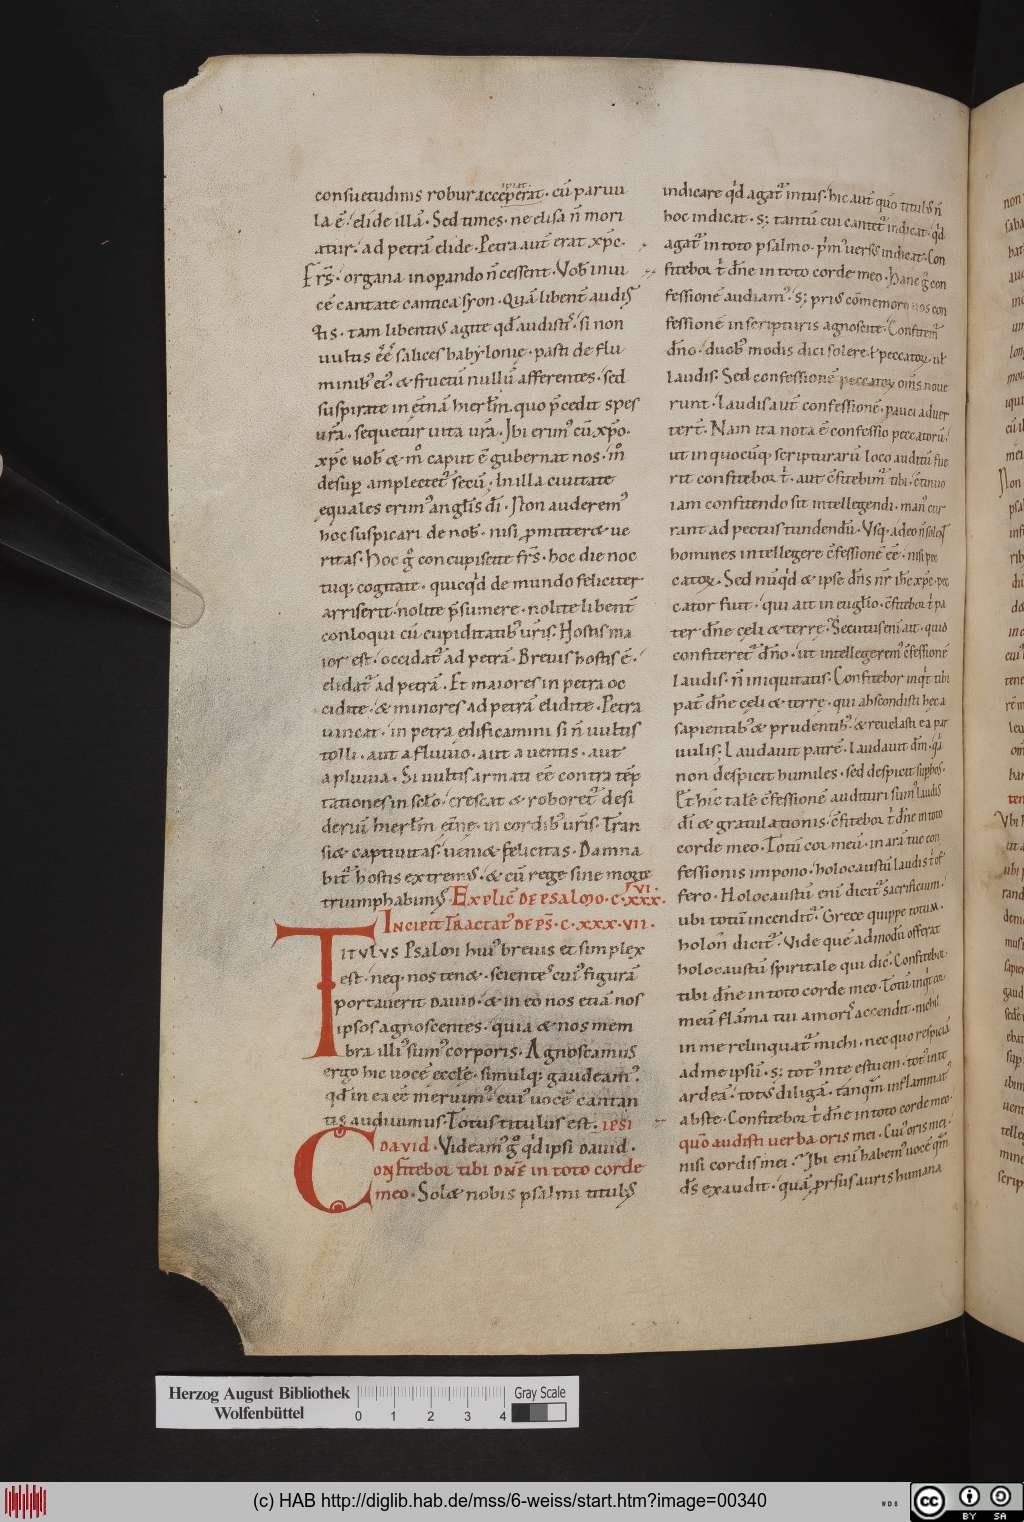 consuetudinis robur acceperat · cū paruu
la ē · elide illā · Sed times · ne elisa n̄ mori
atur · ad petrā elide · Petra aut̄ erat xp̄c ·
Frs̄ · organa inoꝑando n̄ cessent · Vob̄ inui
cē cantate cantica syon · Quā libent̄ audis
tis · tam libentiꝰ agite qd̄ audistis · si non
uultis ēē salices babylonie · pasti de flu
minibꝰ eiꝰ · & fructū nullū afferentes · sed
suspirate in etnā hierl̄m quo p̄cedit spes
ur̄a · sequetur uita ur̄a · Ibi erimꝰ cū xp̄o ·
xp̄c uob̄ & m̊ caput ē gubernat nos · m̊
desuꝑ amplectetᷣ secū · In illa ciuitate
equales erimꝰ angl̄is dī · Non auderemꝰ
hoc suspicari de nob̄ · nisi ꝓmitteret ue
ritas · Hoc g̊ concupiscite frs̄ · hoc die noc
tuq; cogitate · quicqͥd de mundo feliciter
arriserit · nolite p̄sumere · nolite libent̄
conloqui cū cupiditatibꝰ ur̄is · Hostis ma
ior est · occidatᷣ ad petrā · Breuis hostis ē ·
elidatᷣ ad petrā · Et maiores in petra oc
cidite · & minores ad petrā elidite · Petra
uincat · in petra edificamini si n̄ uultis
tolli · aut a fluuio · aut a uentis · aut
a pluuia · Si uultis armati ēē contra tēp
tationes in sclo · crescat & roboretᷣ desi
deriū hierl̄m etn̄e · in cordibꝰ ur̄is · Tran
siet captiuitas · ueniet felicitas · Damna
bitᷣ hostis extremꝰ · & cū rege sine morte
triumphabimꝰ · Explic̄ de psalmo · c · xxx · vi ·
Incipit tractatꝰ de ps̄ · c · xxx · vii ·
Titulus psalmi huiꝰ breuis et simplex
est · neq · nos tenet · scientes cuiꝰ figurā
portauerit dauid · & in eo nos etiā nos
ipsos agnoscentes · quia & nos mem
bra illiꝰ sumꝰ corporis · Agnoscamus
ergo hic uocē eccle · simulq; gaudeamꝰ ·
qd̄ in ea ēē meruimꝰ · cuiꝰ uocē cantan
tis audiuimus · Totus titulus est · ipsi
david · Videamꝰ g̊ qͥd ipsi dauid ·
Confitebor tibi dn̄e in toto corde
meo · Solet nobis psalmi titulꝰ
indicare qͥd agatᷣ intus · hic aut̄ quō titulꝰ n̄
hoc indicat · s; tantū cui cantetᷣ indicat · qͥd
agatᷣ in toto psalmo · pͥmꝰ uersꝰ indicat · Con
fitebor t̄ dn̄e in toto corde meo · Hanc g̊ con
fessionē audiamꝰ · s; priꝰ cōmemoro uos con
fessionē in scripturis agnoscite · Confitemᷣ
dn̄o · duobꝰ modis dici solere · ł peccatoꝝ · uł
laudis · Sed confessionē peccatoꝝ oms̄ noue
runt · Laudis aut̄ confessionē · pauci aduer
tert̄ · Nam ita nota ē confessio peccatorū ·
ut in quocūq scripturarū loco auditū fue
rit confitebor t̄ · aut c̄fitebimᷣ tibi · c̄tinuo
iam confitendo sit intellegendi · manꝰ cur
rant ad pectus tundendū · Vsq adeo n̄ solent
homines intellegere c̄fessionē ēē · nisi pec
catoꝝ · Sed nūqͥd & ipse dn̄s nr̄ ih̄c xp̄c · pec
cator fuit · qui ait in eugl̄io · c̄fitebor t̄ pa
ter dn̄e celi & terre · Secutus eni ait · quid
confiteretᷣ dn̄o · ut intellegeremꝰ c̄fessionē
laudis · n̄ iniquitatis · Confitebor inqͥt tibi
pat̄ dn̄e celi & terre · qui abscondisti hec a
sapientibꝰ & prudentibꝰ · & reuelasti ea par
uulis · Laudauit patrē · Laudauit dm̄ · qͥa
non despicit humiles · sed despicit supbos ·
Et hic talē c̄fessionē audituri sumꝰ laudis
dī & gratulationis · c̄fitebor t̄ dn̄e in toto
corde meo · Totū cor meū · in arā tue con
fessionis impono · holocaustū laudis t̄ of
fero · Holocaustū eni dicitᷣ sacrificium ·
ubi totū incenditᷣ · Grece quippe totum ·
holon dicitᷣ · Vide quē admodū offerat
holocaustū spiritale qui dic̄ · Confitebor
tibi dn̄e in toto corde meo · Totū inqͥt cor
meū flāma tui amoris accendit · nichil
in me relinquatᷣ michi · nec quo respiciā
ad me ipsū · s; totꝰ in te estuem · totꝰ in te
ardeā · totꝰ diligā · tanqm̄ inflammatꝰ
abs te · Confitebor t̄ dn̄e in toto corde meo ·
quō audisti uerba oris mei · Cuiꝰ oris mei ·
nisi cordis mei · Ibi eni habemꝰ uocē qm̄
ds̄ exaudit · quā ꝓrsus auris humana
Herzog August Bibliothek
Wolfenbüttel
0 1 2 3 4
Gray Scale
(c) HAB http://diglib.hab.de/mss/6-weiss/start.htm?image=00340
WDB
cc BY SA